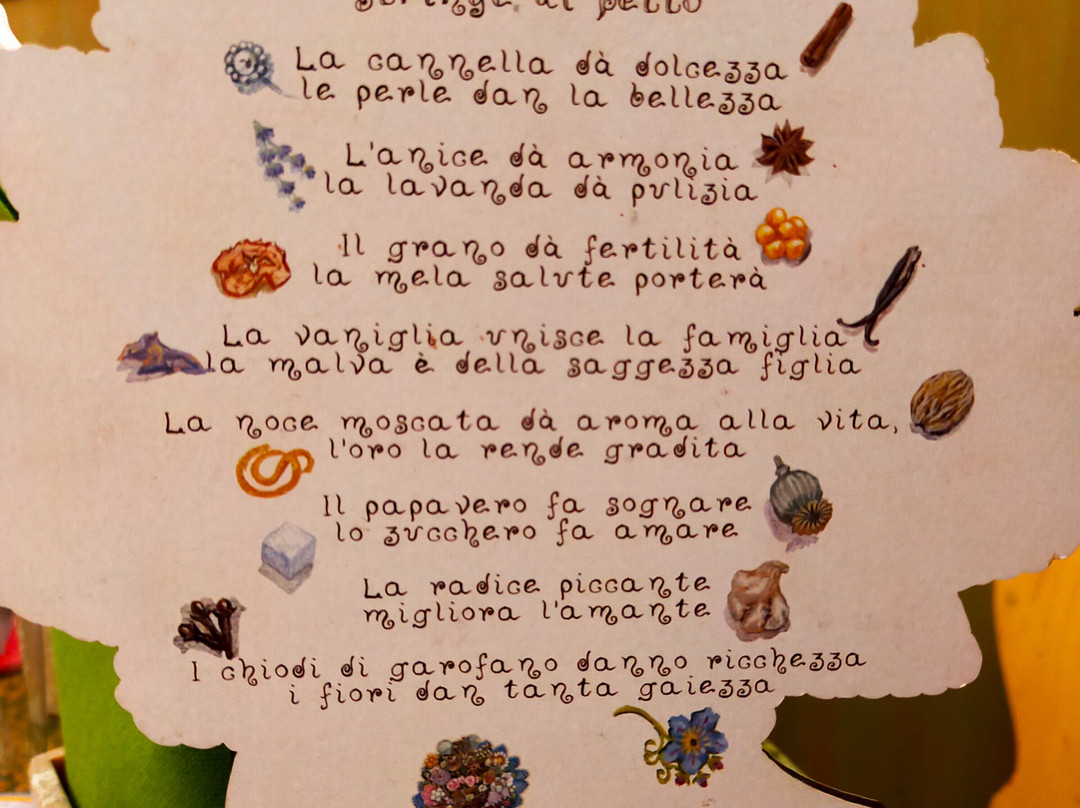 stringa al petto
La cannella dà dolcezza
le perle dan la bellezza
L'anice dà armonia
la lavanda dà pulizia
Il grano dà fertilità
la mela salute porterà
La vaniglia unisce la famiglia
la malva è della saggezza figlia
La noce moscata dà aroma alla vita,
l'oro la rende gradita
Il papavero fa sognare
lo zucchero fa amare
La radice piccante
migliora l'amante
I chiodi di garofano danno ricchezza
i fiori dan tanta gaiezza